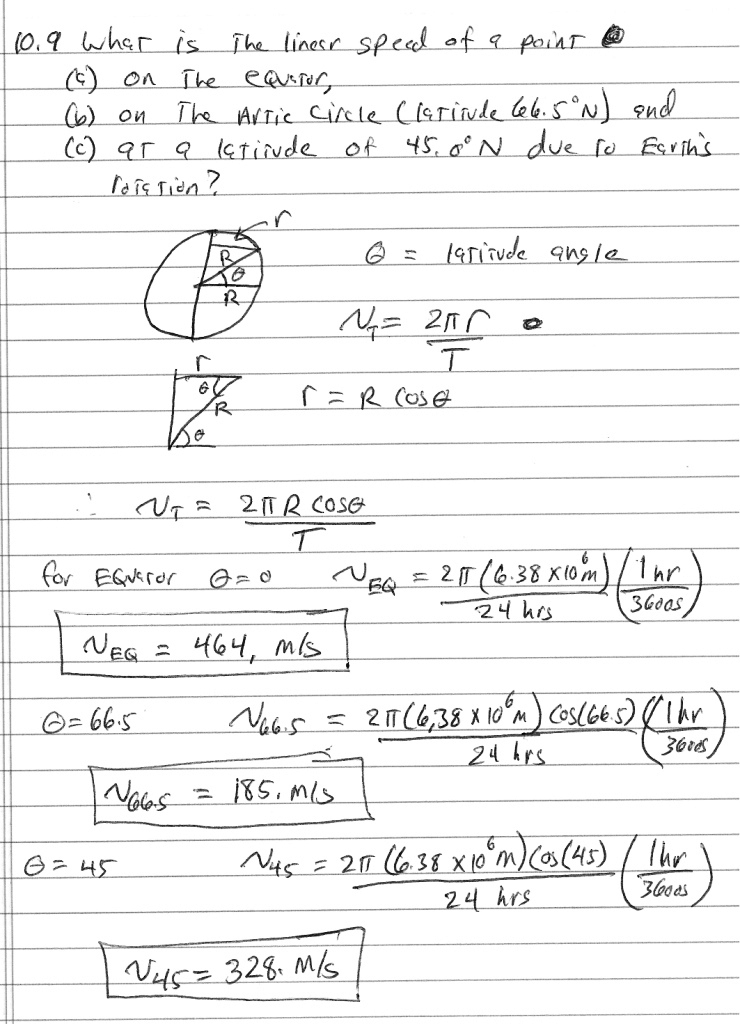 10.9 What is the linear speed of a point
(a) on the equator,
(b) on the Artic Circle (latitude 66.5°N) and
(c) at a latitude of 45.0° N due to Earth's
rotation?
r
R
θ
R
θ = latitude angle
v_T = 2πr / T
r
θ
R
θ
r = R cosθ
∴ v_T = 2πR cosθ / T
for Equator θ = 0 v_EQ = 2π(6.38 x10⁶m) / 24 hrs (1 hr / 3600s)
v_EQ = 464. m/s
θ = 66.5 v_66.5 = 2π(6.38 x 10⁶m) cos(66.5) / 24 hrs (1 hr / 3600s)
v_66.5 = 185. m/s
θ = 45 v_45 = 2π (6.38 x10⁶m) cos(45) / 24 hrs (1hr / 3600s)
v_45 = 328. m/s